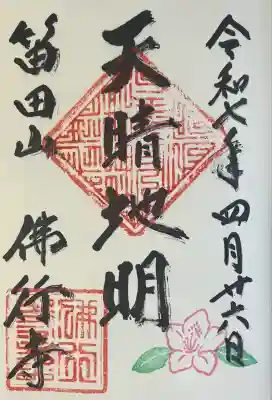 令和七年四月廿六日
天晴地明
笛田山 佛行寺